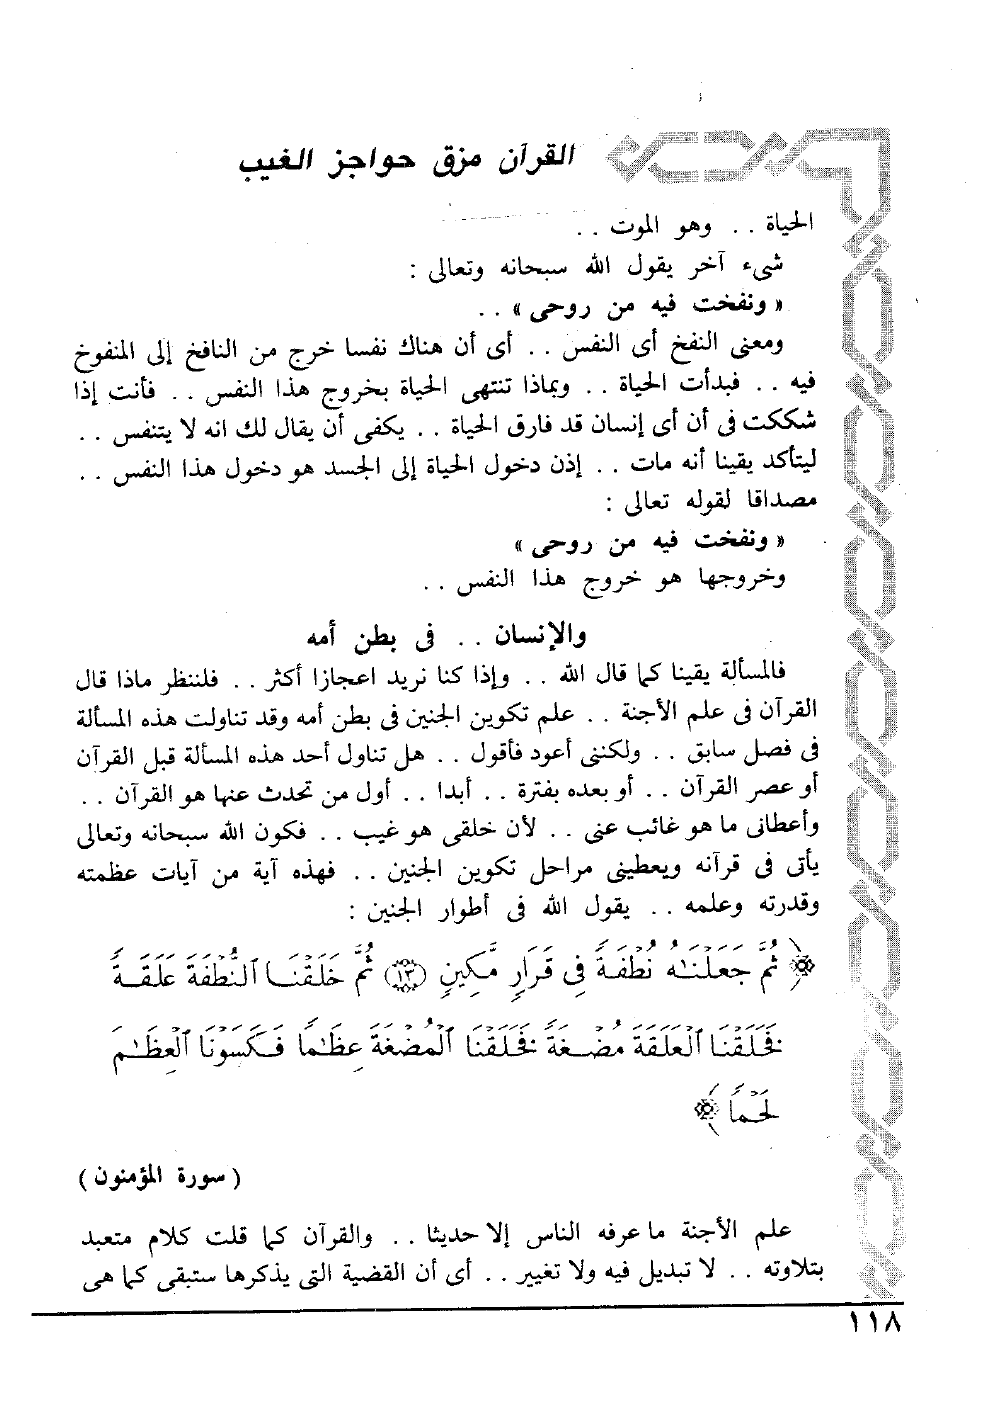 القرآن مزق حواجز الغيب
الحياة . . وهو الموت . .
شىء آخر يقول الله سبحانه وتعالى :
« ونفخت فيه من روحى » . .
ومعنى النفخ أى النفس . . أى أن هناك نفسا خرج من النافخ إلى المنفوخ
فيه . . فبدأت الحياة . . وبماذا تنتهى الحياة بخروج هذا النفس . . فأنت إذا
شككت فى أن أى إنسان قد فارق الحياة . . يكفى أن يقال لك انه لا يتنفس . .
ليتأكد يقينا أنه مات . . إذن دخول الحياة إلى الجسد هو دخول هذا النفس . .
مصداقا لقوله تعالى :
« ونفخت فيه من روحى »
وخروجها هو خروج هذا النفس . .
والإنسان . . فى بطن أمه
فالمسألة يقينا كما قال الله . . وإذا كنا نريد اعجازا أكثر . . فلننظر ماذا قال
القرآن فى علم الأجنة . . علم تكوين الجنين فى بطن أمه وقد تناولت هذه المسألة
فى فصل سابق . . ولكننى أعود فأقول . . هل تناول أحد هذه المسألة قبل القرآن
أو عصر القرآن . . أو بعده بفترة . . أبدا . . أول من تحدث عنها هو القرآن . .
وأعطانى ما هو غائب عنى . . لأن خلقى هو غيب . . فكون الله سبحانه وتعالى
يأتى فى قرآنه ويعطينى مراحل تكوين الجنين . . فهذه آية من آيات عظمته
وقدرته وعلمه . . يقول الله فى أطوار الجنين :
﴿ ثُمَّ جَعَلْنَٰهُ نُطْفَةً فِي قَرَارٍ مَّكِينٍ (١٣) ثُمَّ خَلَقْنَا ٱلنُّطْفَةَ عَلَقَةً
فَخَلَقْنَا ٱلْعَلَقَةَ مُضْغَةً فَخَلَقْنَا ٱلْمُضْغَةَ عِظَٰمًا فَكَسَوْنَا ٱلْعِظَٰمَ
لَحْمًا ﴾
( سورة المؤمنون )
علم الأجنة ما عرفه الناس إلا حديثا . . والقرآن كما قلت كلام متعبد
بتلاوته . . لا تبديل فيه ولا تغيير . . أى أن القضية التى يذكرها ستبقى كما هى
١١٨